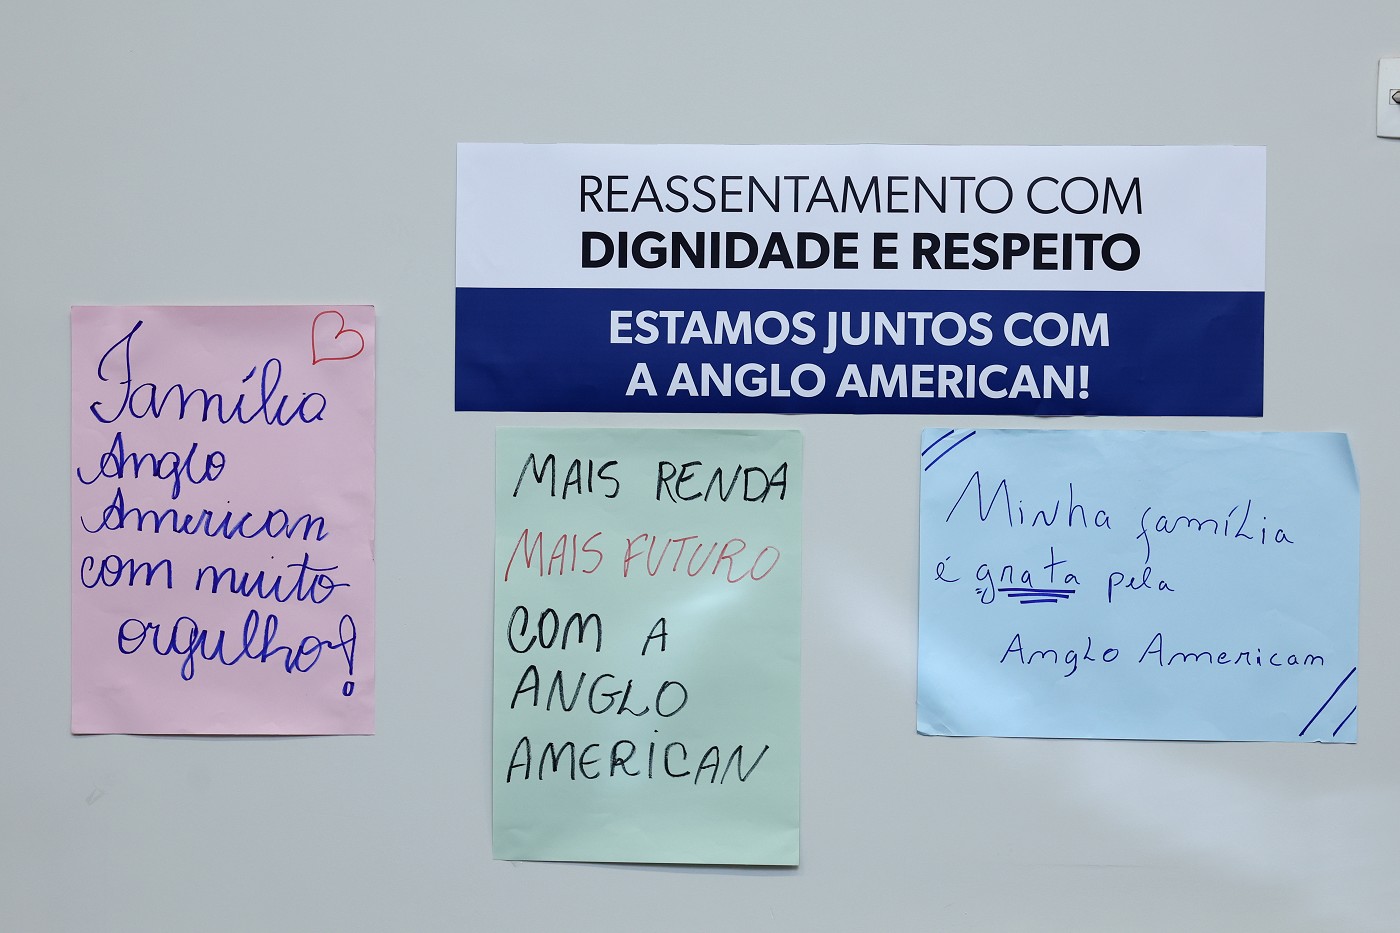 REASSENTAMENTO COM
DIGNIDADE E RESPEITO
ESTAMOS JUNTOS COM
A ANGLO AMERICAN!
Família
Anglo
American
com muito
orgulho!
MAIS RENDA
MAIS FUTURO
COM A
ANGLO
AMERICAN
Minha família
é grata pela
Anglo American